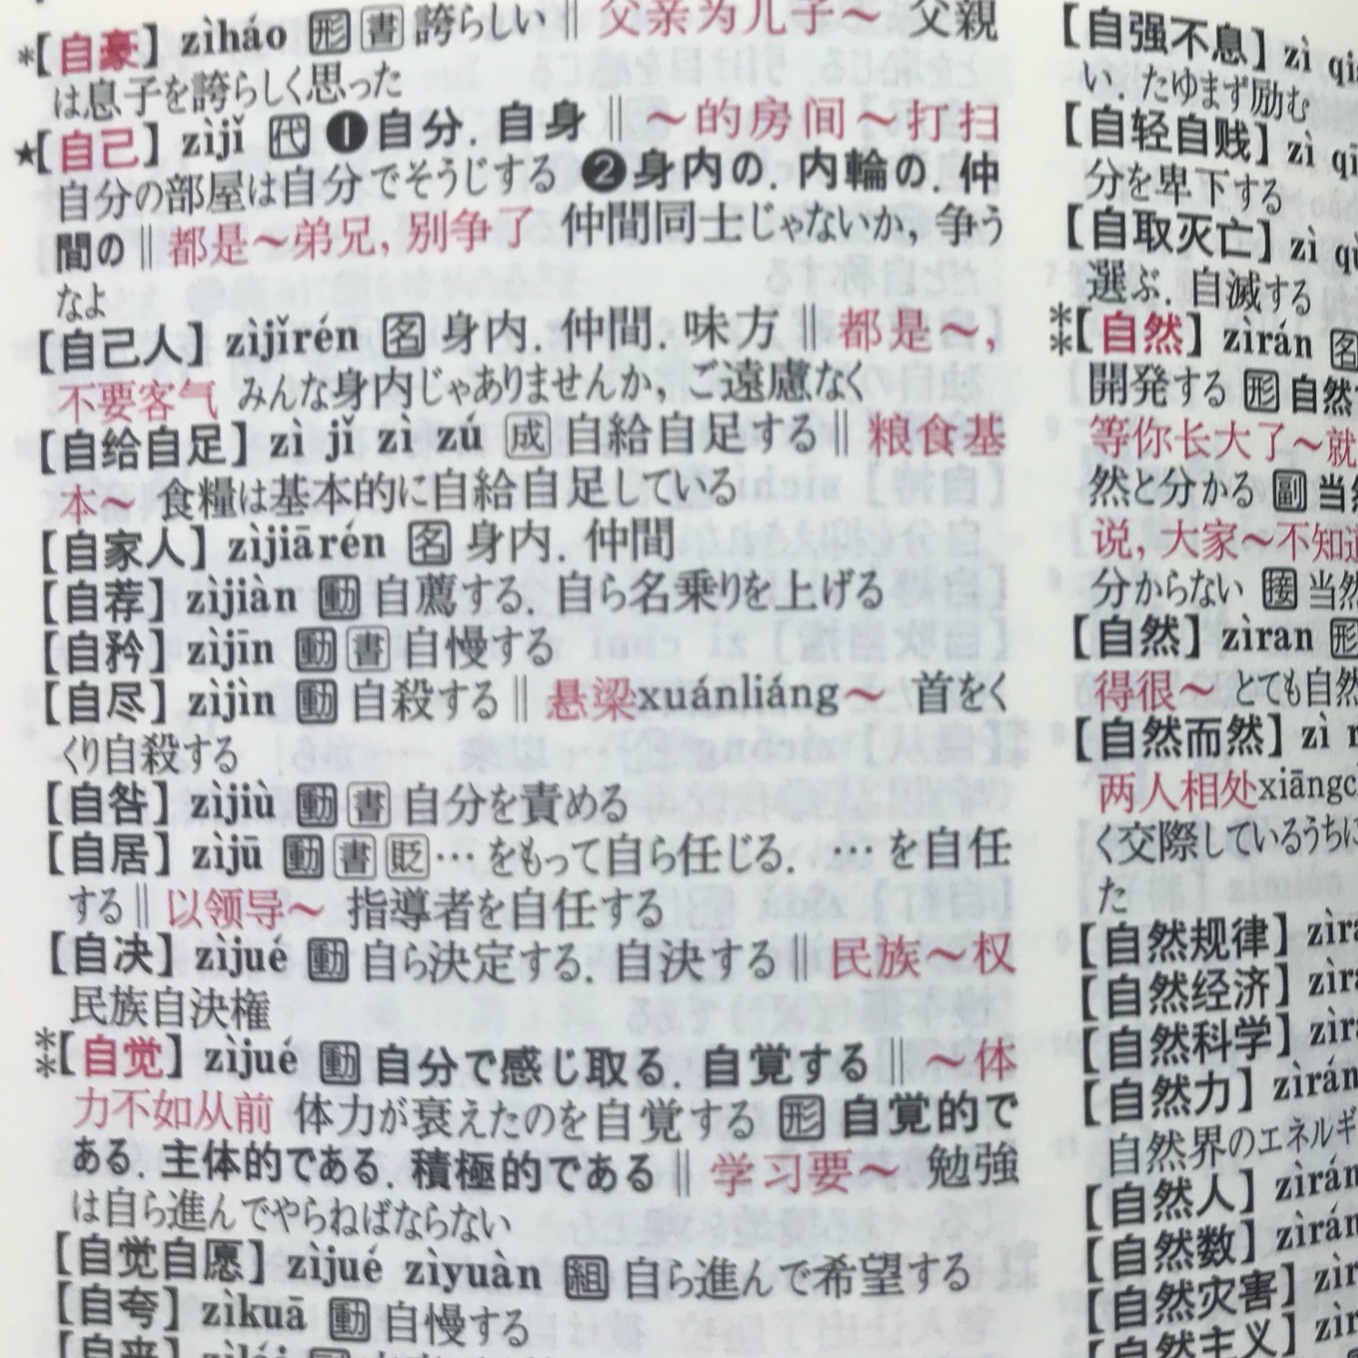 *【自豪】 zìháo 形 書 誇らしい ‖ 父亲为儿子～ 父親
は息子を誇らしく思った
★【自己】 zìjǐ 代 ❶自分．自身 ‖ ～的房间～打扫
自分の部屋は自分でそうじする ❷身内の．内輪の．仲
間の ‖ 都是～弟兄，别争了 仲間同士じゃないか，争う
なよ
【自己人】 zìjǐrén 名 身内．仲間．味方 ‖ 都是～，
不要客气 みんな身内じゃありませんか，ご遠慮なく
【自给自足】 zì jǐ zì zú 成 自給自足する ‖ 粮食基
本～ 食糧は基本的に自給自足している
【自家人】 zìjiārén 名 身内．仲間
【自荐】 zìjiàn 動 自薦する．自ら名乗りを上げる
【自矜】 zìjīn 動 書 自慢する
【自尽】 zìjìn 動 自殺する ‖ 悬梁xuánliáng～ 首をく
くり自殺する
【自咎】 zìjiù 動 書 自分を責める
【自居】 zìjū 動 書 貶 …をもって自ら任じる．…を自任
する ‖ 以领导～ 指導者を自任する
【自决】 zìjué 動 自ら決定する．自決する ‖ 民族～权
民族自決権
**【自觉】 zìjué 動 自分で感じ取る．自覚する ‖ ～体
力不如从前 体力が衰えたのを自覚する 形 自覚的で
ある．主体的である．積極的である ‖ 学习要～ 勉強
は自ら進んでやらねばならない
【自觉自愿】 zìjué zìyuàn 組 自ら進んで希望する
【自夸】 zìkuā 動 自慢する
【自强不息】 zì
い．たゆまず励む
【自轻自贱】 zì
分を卑下する
【自取灭亡】 zì
選ぶ．自滅する
**【自然】 zìrán 名
開発する 形 自然
等你长大了～就
然と分かる 副 当然
说，大家～不知道
分からない 接 当然
【自然】 zìran 形
得很～ とても自然
【自然而然】 zì
两人相处xiāngc
く交際しているうちに
た
【自然规律】
【自然经济】
【自然科学】
【自然力】 zìrán
自然界のエネルギ
【自然人】 zìrán
【自然数】 zìrán
【自然灾害】
【自然主义】